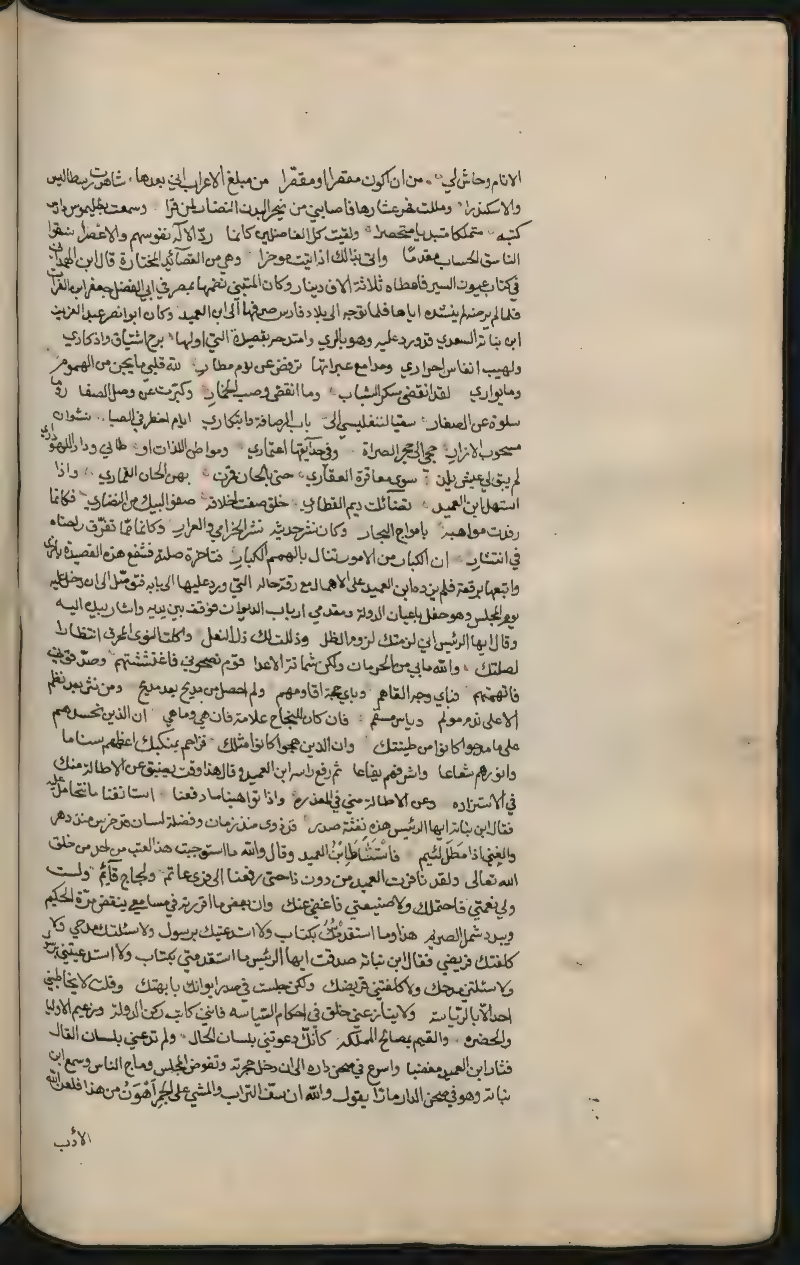 الانام وحاش لي من ان اكون مقصرا ومقصرا من مبلغ الاعراب اني بعدها شاهدت رسطاليس
والاسكندرا ومللت نحر عشارها فاضافني من ينحر البدر النضار لمن قرا وسمعت بطليموس دارس
كتبه متملكا متبديا متحضرا ولقيت كل الفاضلين كانما رد الاله نفوسهم والاعصرا نسقوا
النا نسق الحساب مقدما واتى فذالك اذ اتيت موخرا وهي من القصائد المختارة قال ابن الهمداني
في كتاب عيون السير فاعطاه ثلاثة الاف دينار وكان المتنبي نظمها بمصر في ابي الفضل جعفر ابن الفرات
فلما لم يرضه لم ينشده اياها فلما توجه الى بلاد فارس صرفها الى ابن العميد وكان ابو نصر عبد العزيز
ابن نباتة السعدي قد ورد عليه وهو بالري وامتدحه بقصيدة التي اولها برح اشتياق واذكاري
ولهيب انفاس احراري ومدامع عبراتها ترفض عن نوم مطار لله قلبي ما يجن من الهموم
وما يواري لقد انقضى سكر الشباب وما انقضى وصب الخمار وكبرت عن وصل الصغار وما
سلوة عن الصغار سقيا لتغليسي الى باب الرصافة وابتكاري ايام اخطر في الصبا نشوان
مسحوب الازار حجي الى حجر الصراة وفي حدائقها اعتماري ومواطن اللذات او طاني ودار اللهو داري
لم يبق لي عيش يلذ سوى معاقرة العقاري حتى بالحان قرت بهن الحان القماري واذا
استهل ابن العميد تضائلت ديم القطاري خلق صفت اخلاقه صفو السبيك من النضاري فكانما
رفدت مواهبه بامواج البحار وكان نشر حديثه نشر الخزامى والعرار وكاننا مما تفرق راحتاه
في انتثار ان الكبار من الامور تنال بالهمم الكبار فتاخرة صلته فشفع هذه القصيدة باخرى
واتبعها برقعة فلم يزده ابن العميد على الاهمال مع رقة حاله التي ورد عليها الى بابه فتوصل الى ان دخل عليه
يوم المجلس وهو حفل باعيان الدولة ومقدمي ارباب الديوان فوقف بين يديه واشار بيده اليه
وقال ايها الرئيس اني لزمتك لزوم الظل وذللت لك ذل النعل واكلت النوى المحرق انتظارا
لصلتك والله ما بي من الحرمان ولكن شماتة الاعدا قوم نصحوني فاغتششتهم وصدقوني
فاتهمتهم فباي وجه القاهم وباي حجة اقاومهم ولم احصل من مديح بعد مديح ومن نثر بعد نظم
الا على ندم مولم وياس مسقم فان كان للنجاح علامة فاين هي وما هي ان الذين تحسدهم
على ما مدحوا كانوا من طينتك وان الذين هجوا كانوا مثلك فزاحم بمنكبك اعظمهم سناما
وانورهم شعاعا واشرفهم يفاعا ثم رفع راسه ابن العميد وقال هذا وقت يضيق عن الاطالة منك
في الاستزاده وعن الاطالة مني في المعذره واذا تواهبنا ما دفعنا استانفنا ما نتحامد عليه
فقال ابن نباته ايها الرئيس هذه نفثة صدر قد ذوى منذ زمان وفضلة لسان قد خرس منذ دهر
والغني اذا مطل لئيم فاستشاط ابن العميد وقال والله ما استوجبت هذا العتب من احد من خلق
الله تعالى ولقد نافرت العميد من دون ذا حتى رفعنا الى قرى عاتم ولجاج قائم ولست
ولي نعمتي فاحتملك ولا صنيعتي فاغضي عنك وان بعض ما اقررته في مسامعي ينقض مرة الحكيم
ويبدد شمل الصبر هذا وما استقدمتك بكتاب ولا استدعيتك برسول ولا سئلتك مدحي ولا
كلفتك قريضي فقال ابن نباته صدقت ايها الرئيس ما استقدمتني بكتاب ولا استدعيتني برسول
ولا سئلتني مدحك ولا كلفتني قريضك ولكن جلست في صدر ايوانك بابهتك وقلت لا يخاطبني
احد الا بالرياسة ولا ينازعني خلق في احكام السياسه فاني كاتب ركن الدولة وزعيم الاوليا
والحضره والقيم بمصالح المملكه كانك دعوتني بلسان الحال ولم تدعني بلسان القال
فثار ابن العميد مغضبا واسرع في صحن داره الى ان دخل حجرته وتقوض المجلس وماج الناس وسمع ابن
نباته وهو في صحن الدار مارا يقول والله ان سف التراب والمشي على الجمر اهون من هذا فلعن الله
الأدب